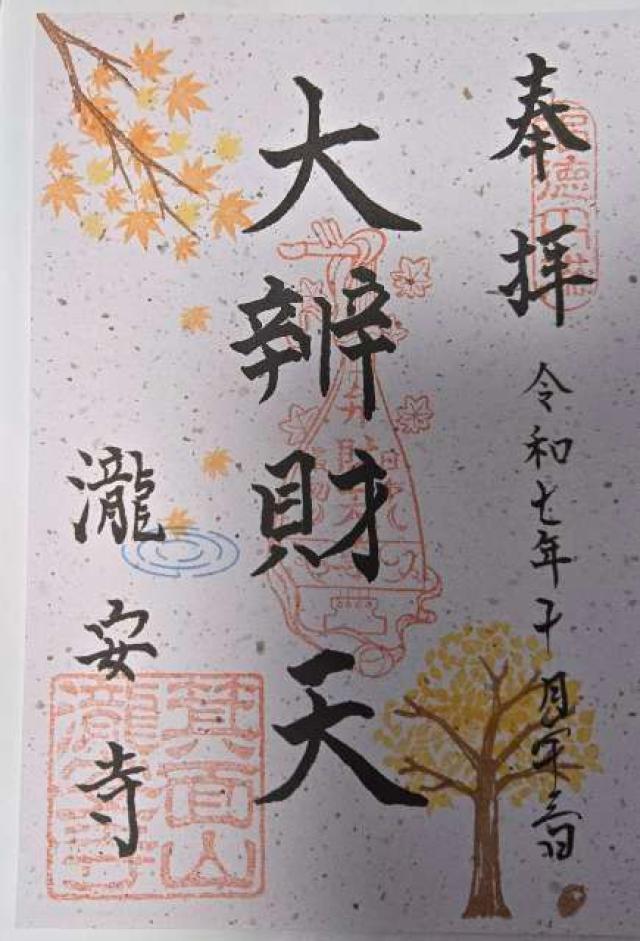 奉拝
令和七年
大辨財天
瀧安寺
箕面山
瀧安寺